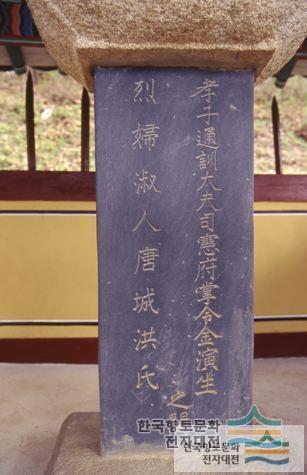 孝子通訓大夫司憲府掌令金演生
烈婦淑人唐城洪氏
之門
한국향토문화
전자대전
한국향토문화
전자대전